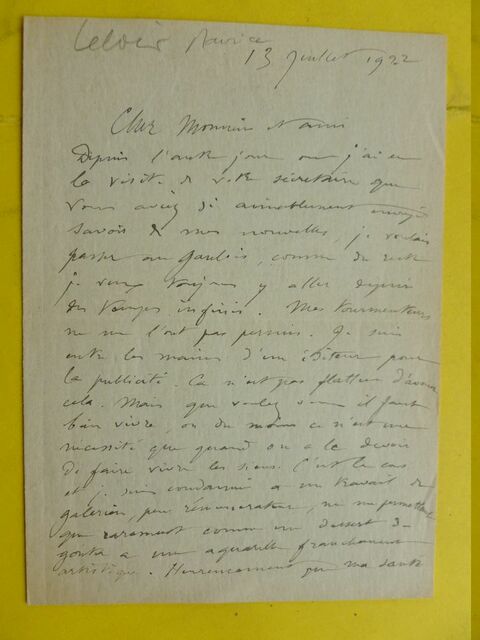 Leloir Maurice
13 juillet 1922
Cher Monsieur et ami
Depuis l'autre jour où j'ai eu
la visite de votre secrétaire que
vous aviez si aimablement envoyé
savoir de mes nouvelles, je voulais
passer au Gaulois, comme du reste
je veux toujours y aller depuis
des temps infinis. Mes tourmenteurs
ne me l'ont pas permis. Je suis
entre les mains d'un éditeur pour
la publicité. Ca n'est pas flatteur d'avouer
cela. Mais que voulez vous il faut
bien vivre, ou du moins c'est une
nécessité que quand on a le devoir
de faire vivre les siens. C'est le cas
et je suis condamné à un travail de
galérien, peu rémunérateur, ne me permettant
que rarement comme un dessert de
gouter à une aquarelle franchement
artistique. Heureusement que ma santé